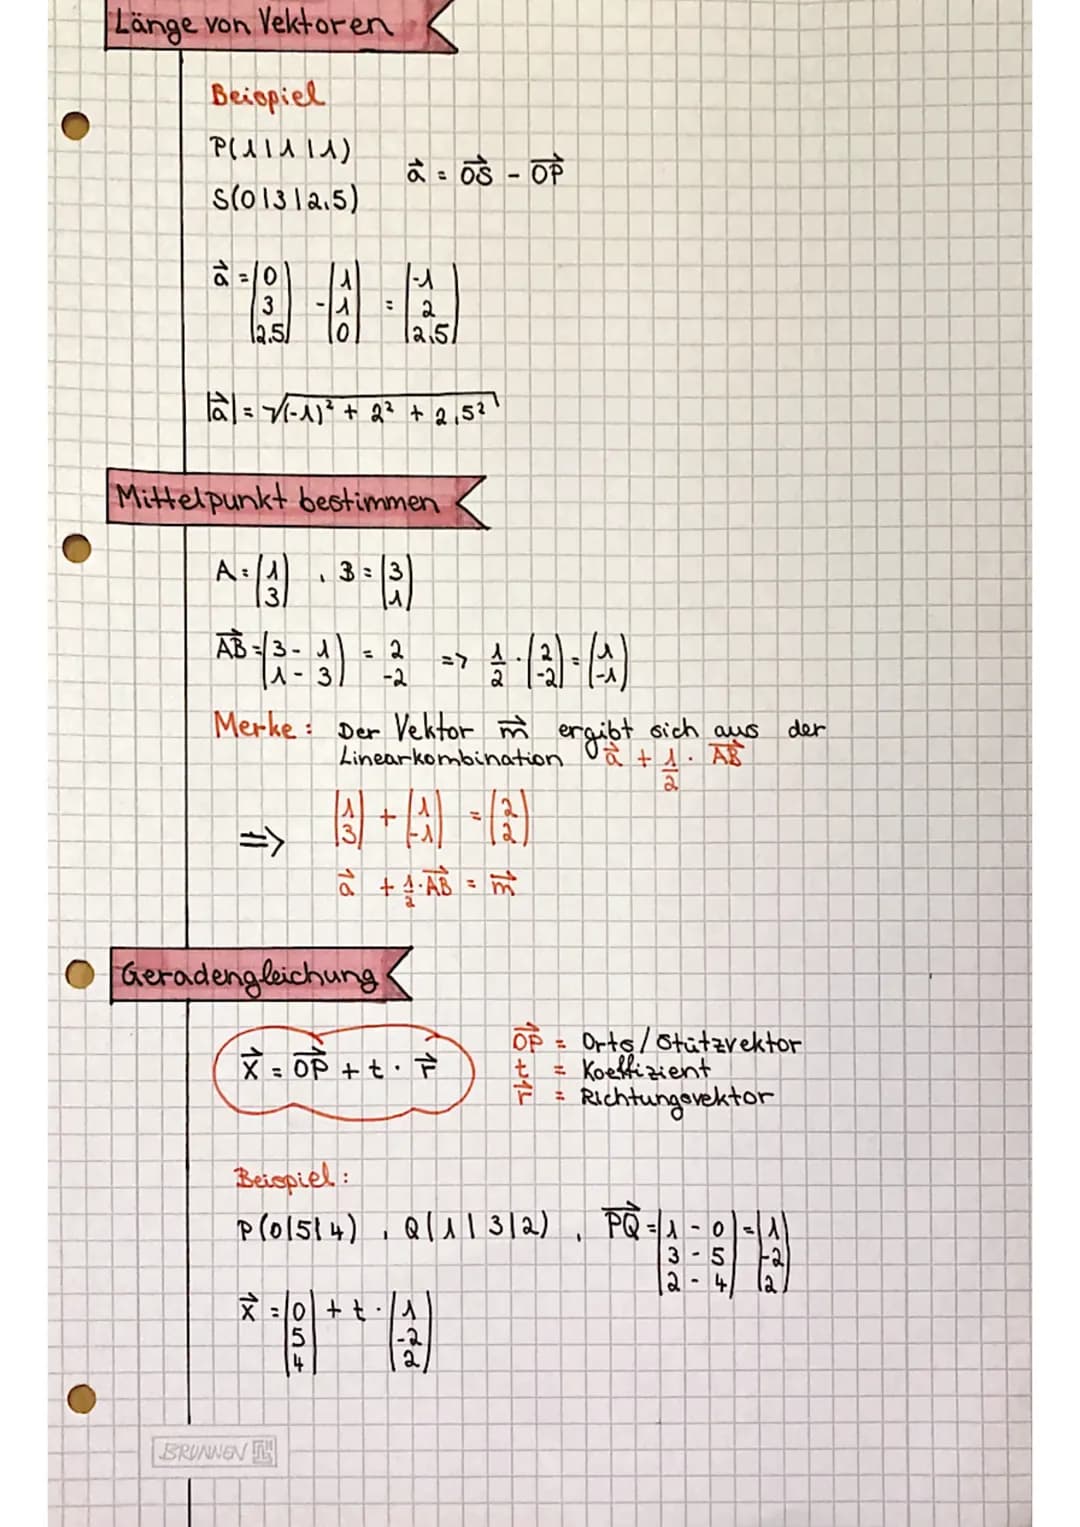 Länge von Vektoren
Beispiel
P(1|1|1)
S(0|3|2,5)
a⃗ = OS⃗ - OP⃗
a⃗ = (0 3 2,5) - (1 1 0) = (-1 2 2,5)
|a⃗| = √(-1)² + 2² + 2,5²
Mittelpunkt bestimmen
A = (1 3) , B = (3 1)
AB⃗ = (3 - 1 1 - 3) = 2 -2 => 1/2 · (2 -2) = (1 -1)
Merke: Der Vektor m⃗ ergibt sich aus der
Linearkombination a⃗ + 1/2 · AB⃗
=> (1 3) + (1 -1) = (2 2)
a⃗ + 1/2 · AB⃗ = m⃗
Geradengleichung
x⃗ = OP⃗ + t · r⃗
OP⃗ = Orts/Stützvektor
t = Koeffizient
r⃗ = Richtungsvektor
Beispiel:
P(0|5|4) , Q(1|3|2) , PQ⃗ = (1 - 0 3 - 5 2 - 4) = (1 -2 2)
x⃗ = (0 5 4) + t · (1 -2 2)
BRUNNEN